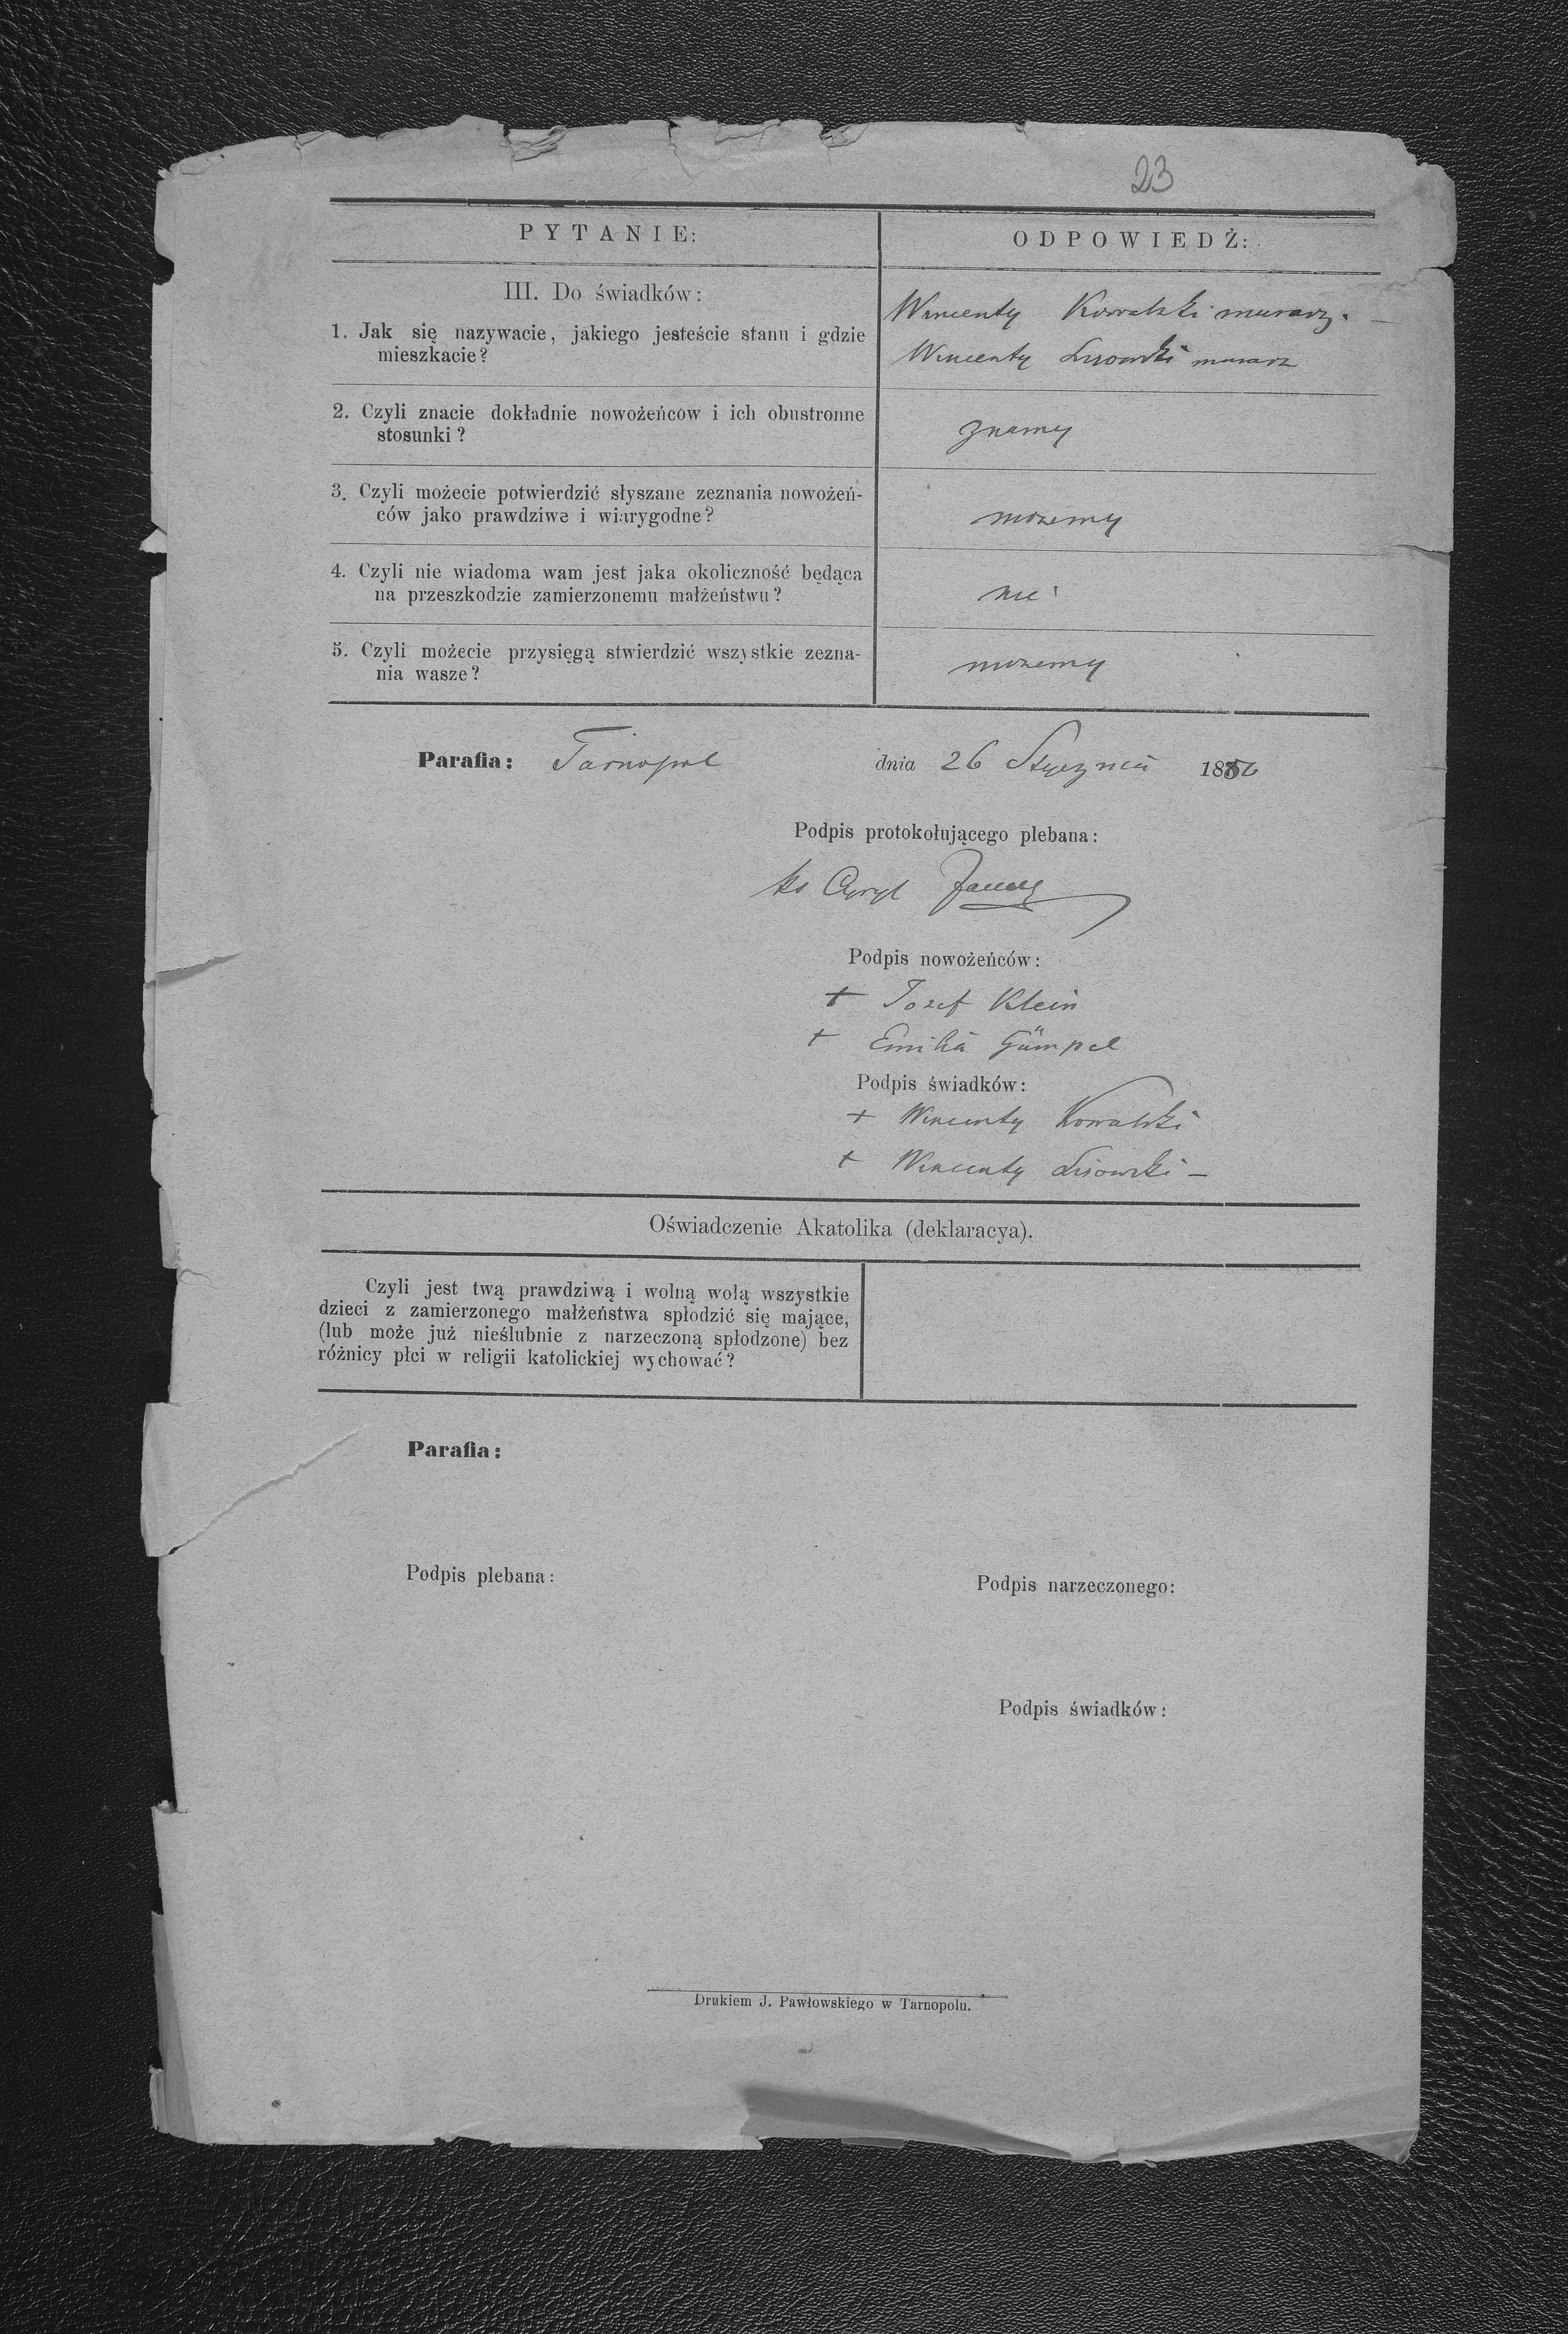 23
PYTANIE:
ODPOWIEDŻ:
III. Do świadków:
1. Jak się nazywacie, jakiego jesteście stanu i gdzie
mieszkacie?
Wincenty Kowalski murarz.
Wincenty Lisowski murarz
2. Czyli znacie dokładnie nowożeńcow i ich obustronne
stosunki?
znamy
3. Czyli możecie potwierdzić słyszane zeznania nowożeń-
ców jako prawdziwe i wiarygodne?
możemy
4. Czyli nie wiadoma wam jest jaka okoliczność będąca
na przeszkodzie zamierzonemu małżeństwu?
nie
5. Czyli możecie przysięgą stwierdzić wszystkie zezna-
nia wasze?
możemy
Parafia: Tarnopol dnia 26 Stycznia
Podpis protokołującego plebana:
ks Cyryl
Podpis nowożeńców:
+ Jozef Klein
+ Emilia Gümpel
Podpis świadków:
+ Wincenty Kowalski
+ Wincenty Lisowski —
Oświadczenie Akatolika (deklaracya).
Czyli jest twą prawdziwą i wolną wolą wszystkie
dzieci z zamierzonego małżeństwa spłodzić się mające,
(lub może już nieślubnie z narzeczoną spłodzone) bez
różnicy płci w religii katolickiej wychować?
Parafia:
Podpis plebana:
Podpis narzeczonego:
Podpis świadków:
Drukiem J. Pawłowskiego w Tarnopolu.